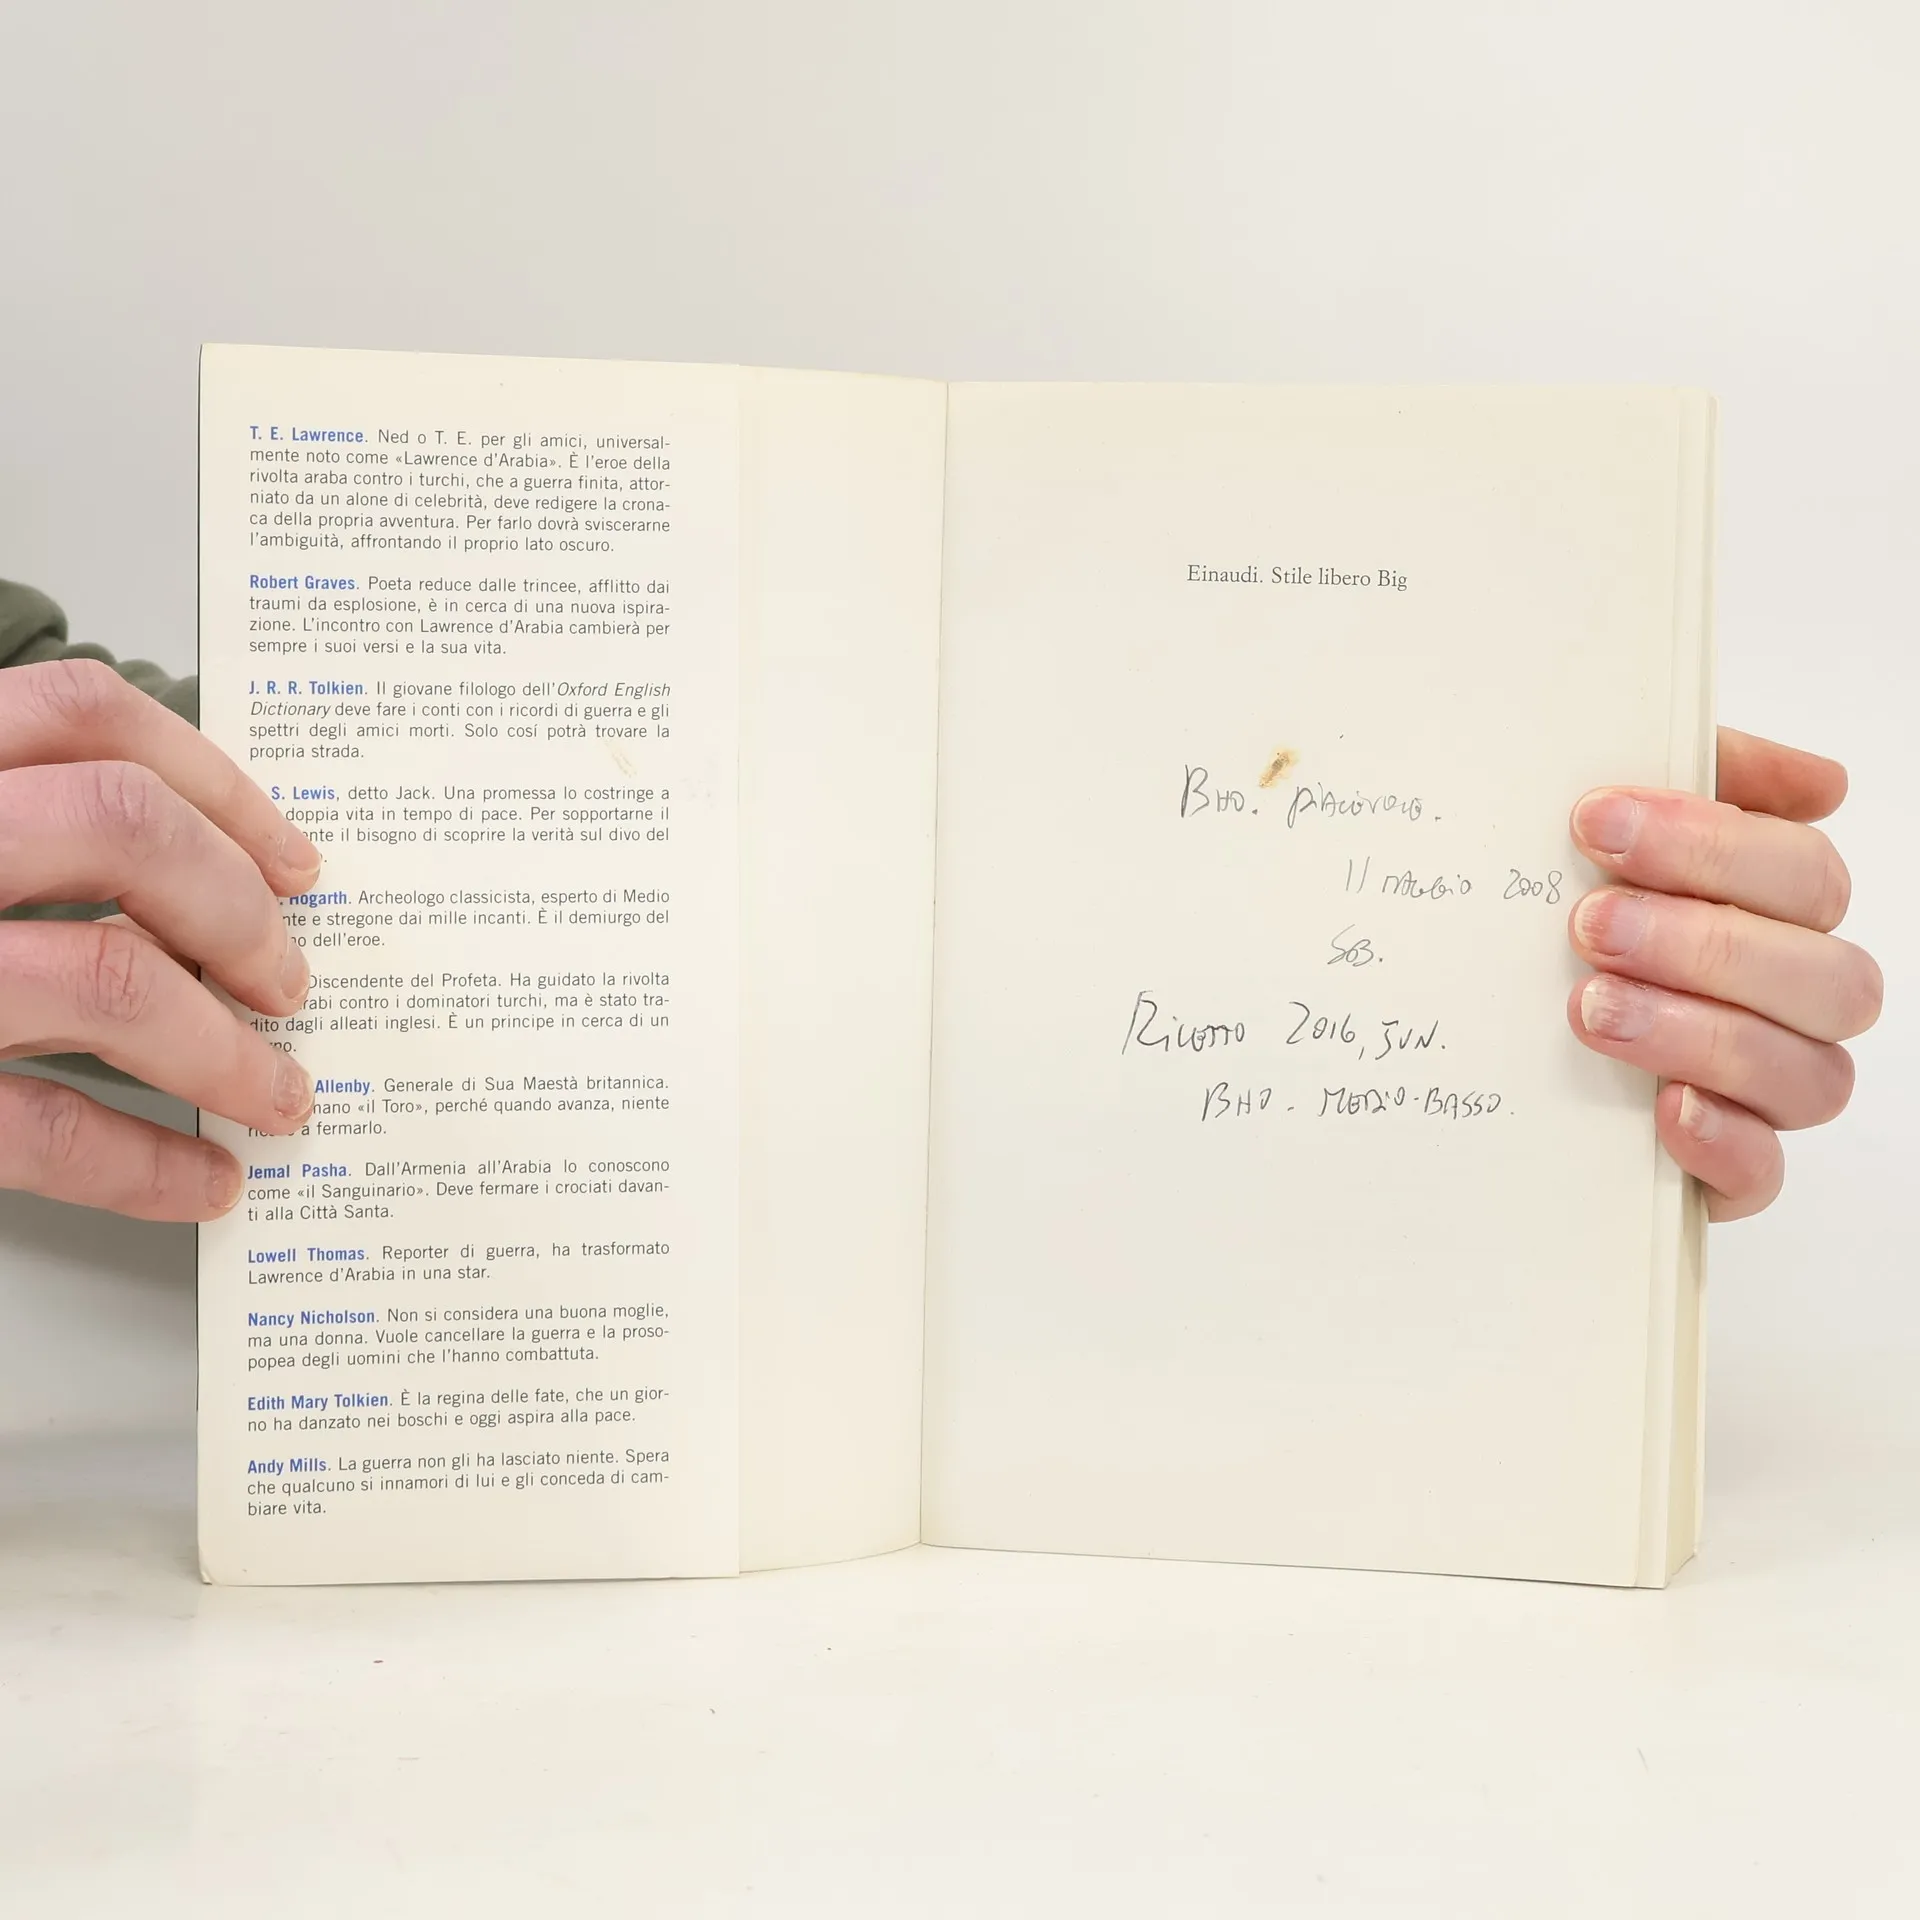 T. E. Lawrence. Ned o T. E. per gli amici, universal-
mente noto come «Lawrence d'Arabia». È l'eroe della
rivolta araba contro i turchi, che a guerra finita, attor-
niato da un alone di celebrità, deve redigere la crona-
ca della propria avventura. Per farlo dovrà sviscerarne
l'ambiguità, affrontando il proprio lato oscuro.
Robert Graves. Poeta reduce dalle trincee, afflitto dai
traumi da esplosione, è in cerca di una nuova ispira-
zione. L'incontro con Lawrence d'Arabia cambierà per
sempre i suoi versi e la sua vita.
J. R. R. Tolkien. Il giovane filologo dell'Oxford English
Dictionary deve fare i conti con i ricordi di guerra e gli
spettri degli amici morti. Solo cosí potrà trovare la
propria strada.
S. Lewis, detto Jack. Una promessa lo costringe a
doppia vita in tempo di pace. Per sopportarne il
il bisogno di scoprire la verità sul divo del
Hogarth. Archeologo classicista, esperto di Medio
e stregone dai mille incanti. È il demiurgo del
dell'eroe.
Discendente del Profeta. Ha guidato la rivolta
contro i dominatori turchi, ma è stato tra-
dito dagli alleati inglesi. È un principe in cerca di un
Allenby. Generale di Sua Maestà britannica.
«il Toro», perché quando avanza, niente
a fermarlo.
Jemal Pasha. Dall'Armenia all'Arabia lo conoscono
come «il Sanguinario». Deve fermare i crociati davan-
ti alla Città Santa.
Lowell Thomas. Reporter di guerra, ha trasformato
Lawrence d'Arabia in una star.
Nancy Nicholson. Non si considera una buona moglie,
ma una donna. Vuole cancellare la guerra e la proso-
popea degli uomini che l'hanno combattuta.
Edith Mary Tolkien. È la regina delle fate, che un gior-
no ha danzato nei boschi e oggi aspira alla pace.
Andy Mills. La guerra non gli ha lasciato niente. Spera
che qualcuno si innamori di lui e gli conceda di cam-
biare vita.
Einaudi. Stile libero Big
BHO. PIACEVOLE.
11 MAGGIO 2008
SGB.
RILETTO 2016, JUN.
BHO. MEDIO-BASSO.